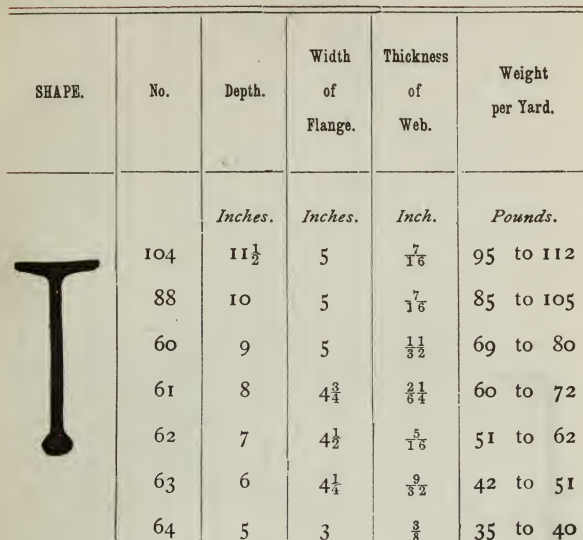 SHAPE. No. Depth. Width of Flange. Thickness of Web. Weight per Yard.
Inches. Inches. Inch. Pounds.
104 11½ 5 7/16 95 to 112
88 10 5 7/16 85 to 105
60 9 5 11/32 69 to 80
61 8 4¾ 21/64 60 to 72
62 7 4½ 5/16 51 to 62
63 6 4¼ 9/32 42 to 51
64 5 3 3/8 35 to 40